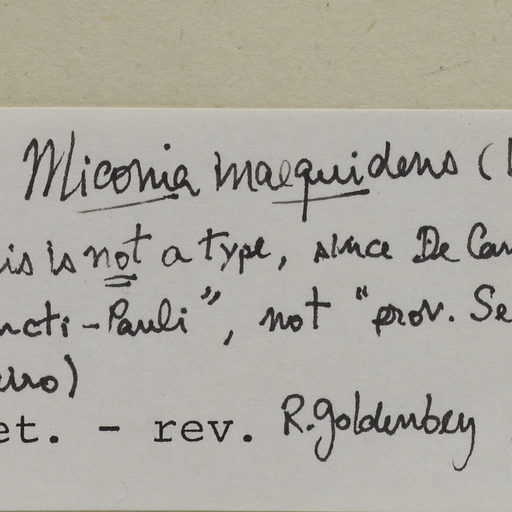 Miconia inaequidens (
is is not a type, since De Can
ncti-Pauli", not "prov. Se
eiro)
et. - rev. R. Goldenberg